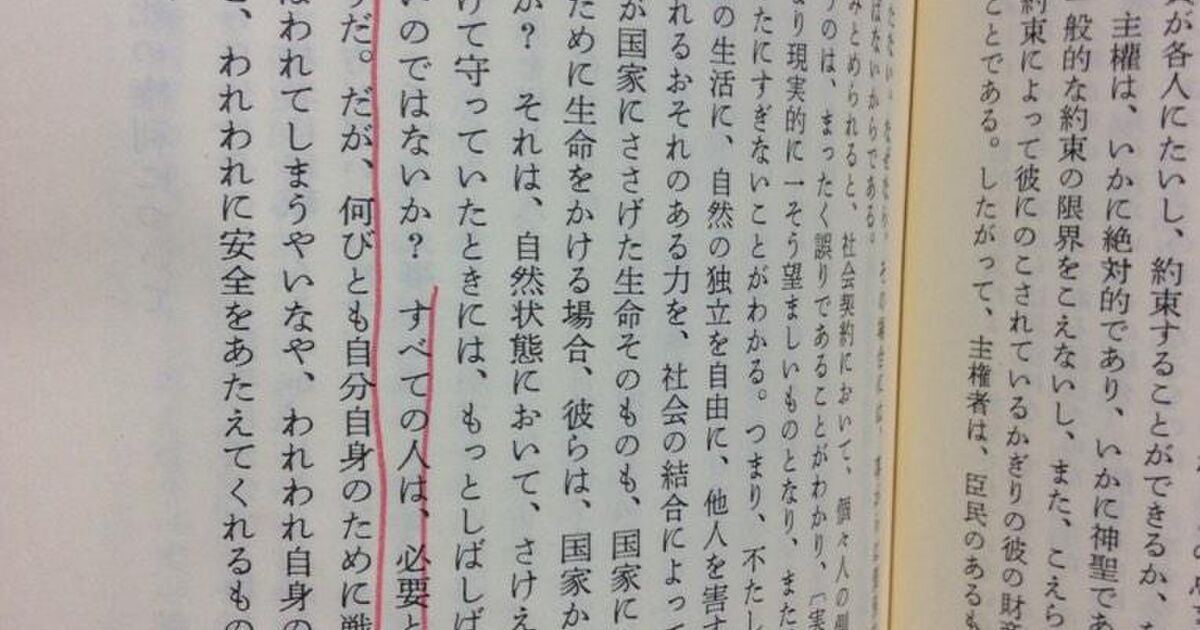 が各人にたいし、約束することができるか、
主権は、いかに絶対的であり、いかに神聖であ
一般的な約束の限界をこえないし、また、こえら
約束によって彼にのこされているかぎりの彼の財産
ことである。したがって、主権者は、臣民のあるも
ばないからである。
みとめられると、社会契約において、個々人の側
うのは、まったく誤りであることがわかり、〔実
り現実的に一そう望ましいものとなり、また
たにすぎないことがわかる。つまり、不たし
の生活に、自然の独立を自由に、他人を害す
れるおそれのある力を、社会の結合によって
が国家にささげた生命そのものも、国家に
ために生命をかける場合、彼らは、国家か
か？それは、自然状態において、さけえ
けて守っていたときには、もっとしばしば
いのではないか？すべての人は、必要と
だ。だが、何びとも自分自身のために戦
われてしまうやいなや、われわれ自身の
、われわれに安全をあたえてくれるもの